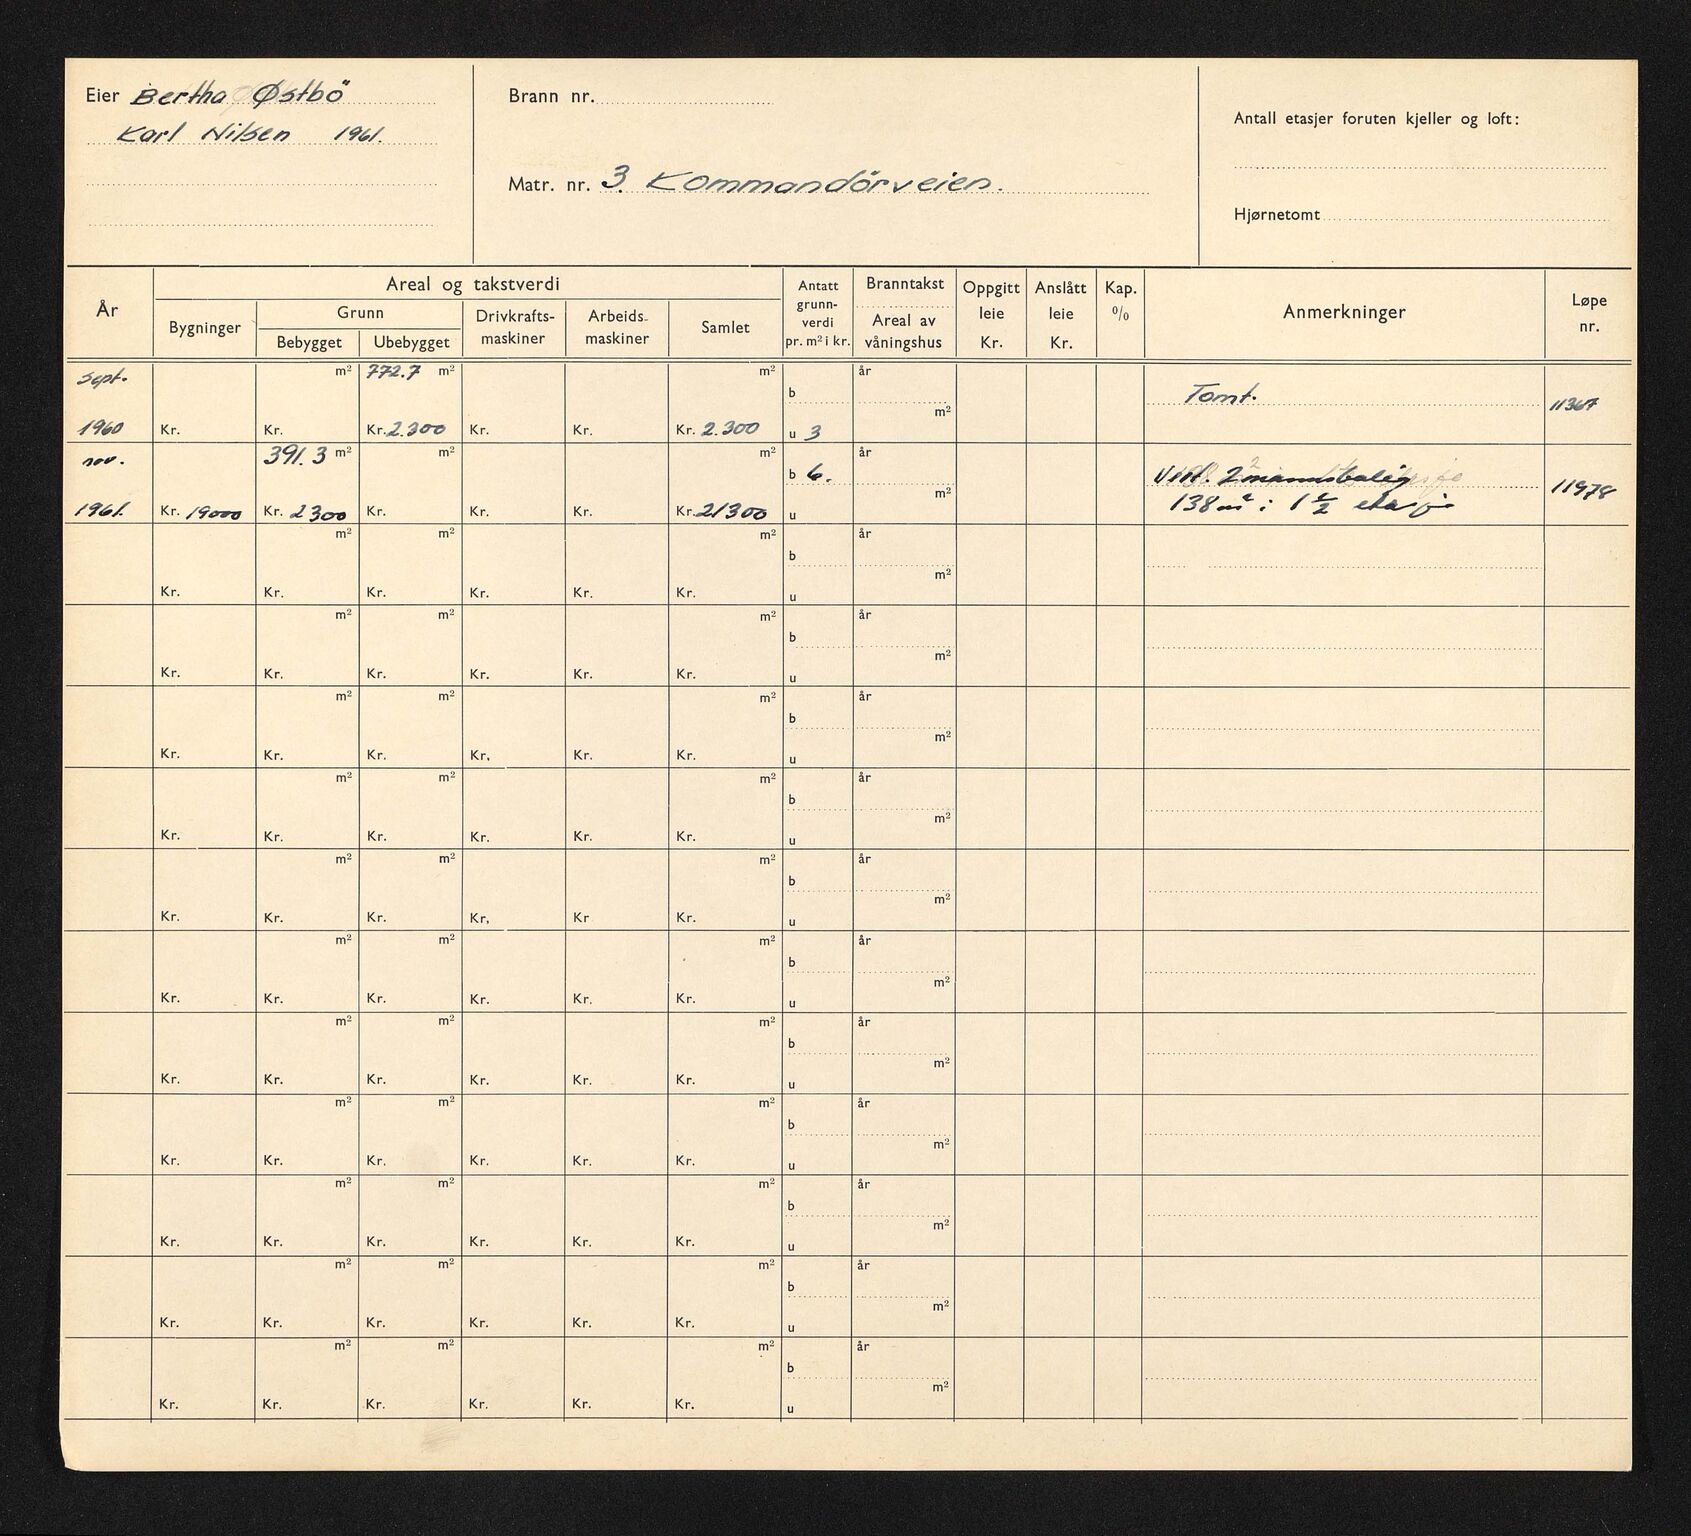 Eier Bertha Østbö
Karl Nilsen 1961.
Brann nr.
Matr. nr. 3. Kommandörveien.
Antall etasjer foruten kjeller og loft:
Hjørnetomt
År
Areal og takstverdi
Bygninger
Grunn
Bebygget
Ubebygget
Drivkrafts-
maskiner
Arbeids-
maskiner
Samlet
Antatt
grunn-
verdi
pr. m² i kr.
Branntakst
Areal av
våningshus
Oppgitt
leie
Kr.
Anslått
leie
Kr.
Kap.
%
Anmerkninger
Løpe
nr.
Sept. m² 772.7 m² m² år
b Tomt. 11367
m²
1960 Kr. Kr. Kr. 2.300 Kr. Kr. Kr. 2.300 u 3
nov. 391.3 m² m² m² år
b 6. 2mannsbolig 11978
m²
1961. Kr. 19000 Kr. 2300 Kr. Kr. Kr. Kr. 21300 u 138 m² i 1 1/2 etasje
m² m² m² år
b
m²
Kr. Kr. Kr. Kr. Kr. Kr. u
m² m² m² år
b
m²
Kr. Kr. Kr. Kr. Kr. Kr. u
m² m² m² år
b
m²
Kr. Kr. Kr. Kr. Kr. Kr. u
m² m² m² år
b
m²
Kr. Kr. Kr. Kr. Kr. Kr. u
m² m² m² år
b
m²
Kr. Kr. Kr. Kr. Kr Kr. u
m² m² m² år
b
m²
Kr. Kr. Kr. Kr. Kr. Kr. u
m² m² m² år
b
m²
Kr. Kr. Kr. Kr. Kr. Kr. u
m² m² m² år
b
m²
Kr. Kr. Kr. Kr. Kr. Kr. u
m² m² m² år
b
m²
Kr. Kr. Kr. Kr. Kr. Kr. u
m² m² m² år
b
m²
Kr. Kr. Kr. Kr. Kr. Kr. u
m² m² m² år
b
m²
Kr. Kr. Kr. Kr. Kr. Kr. u